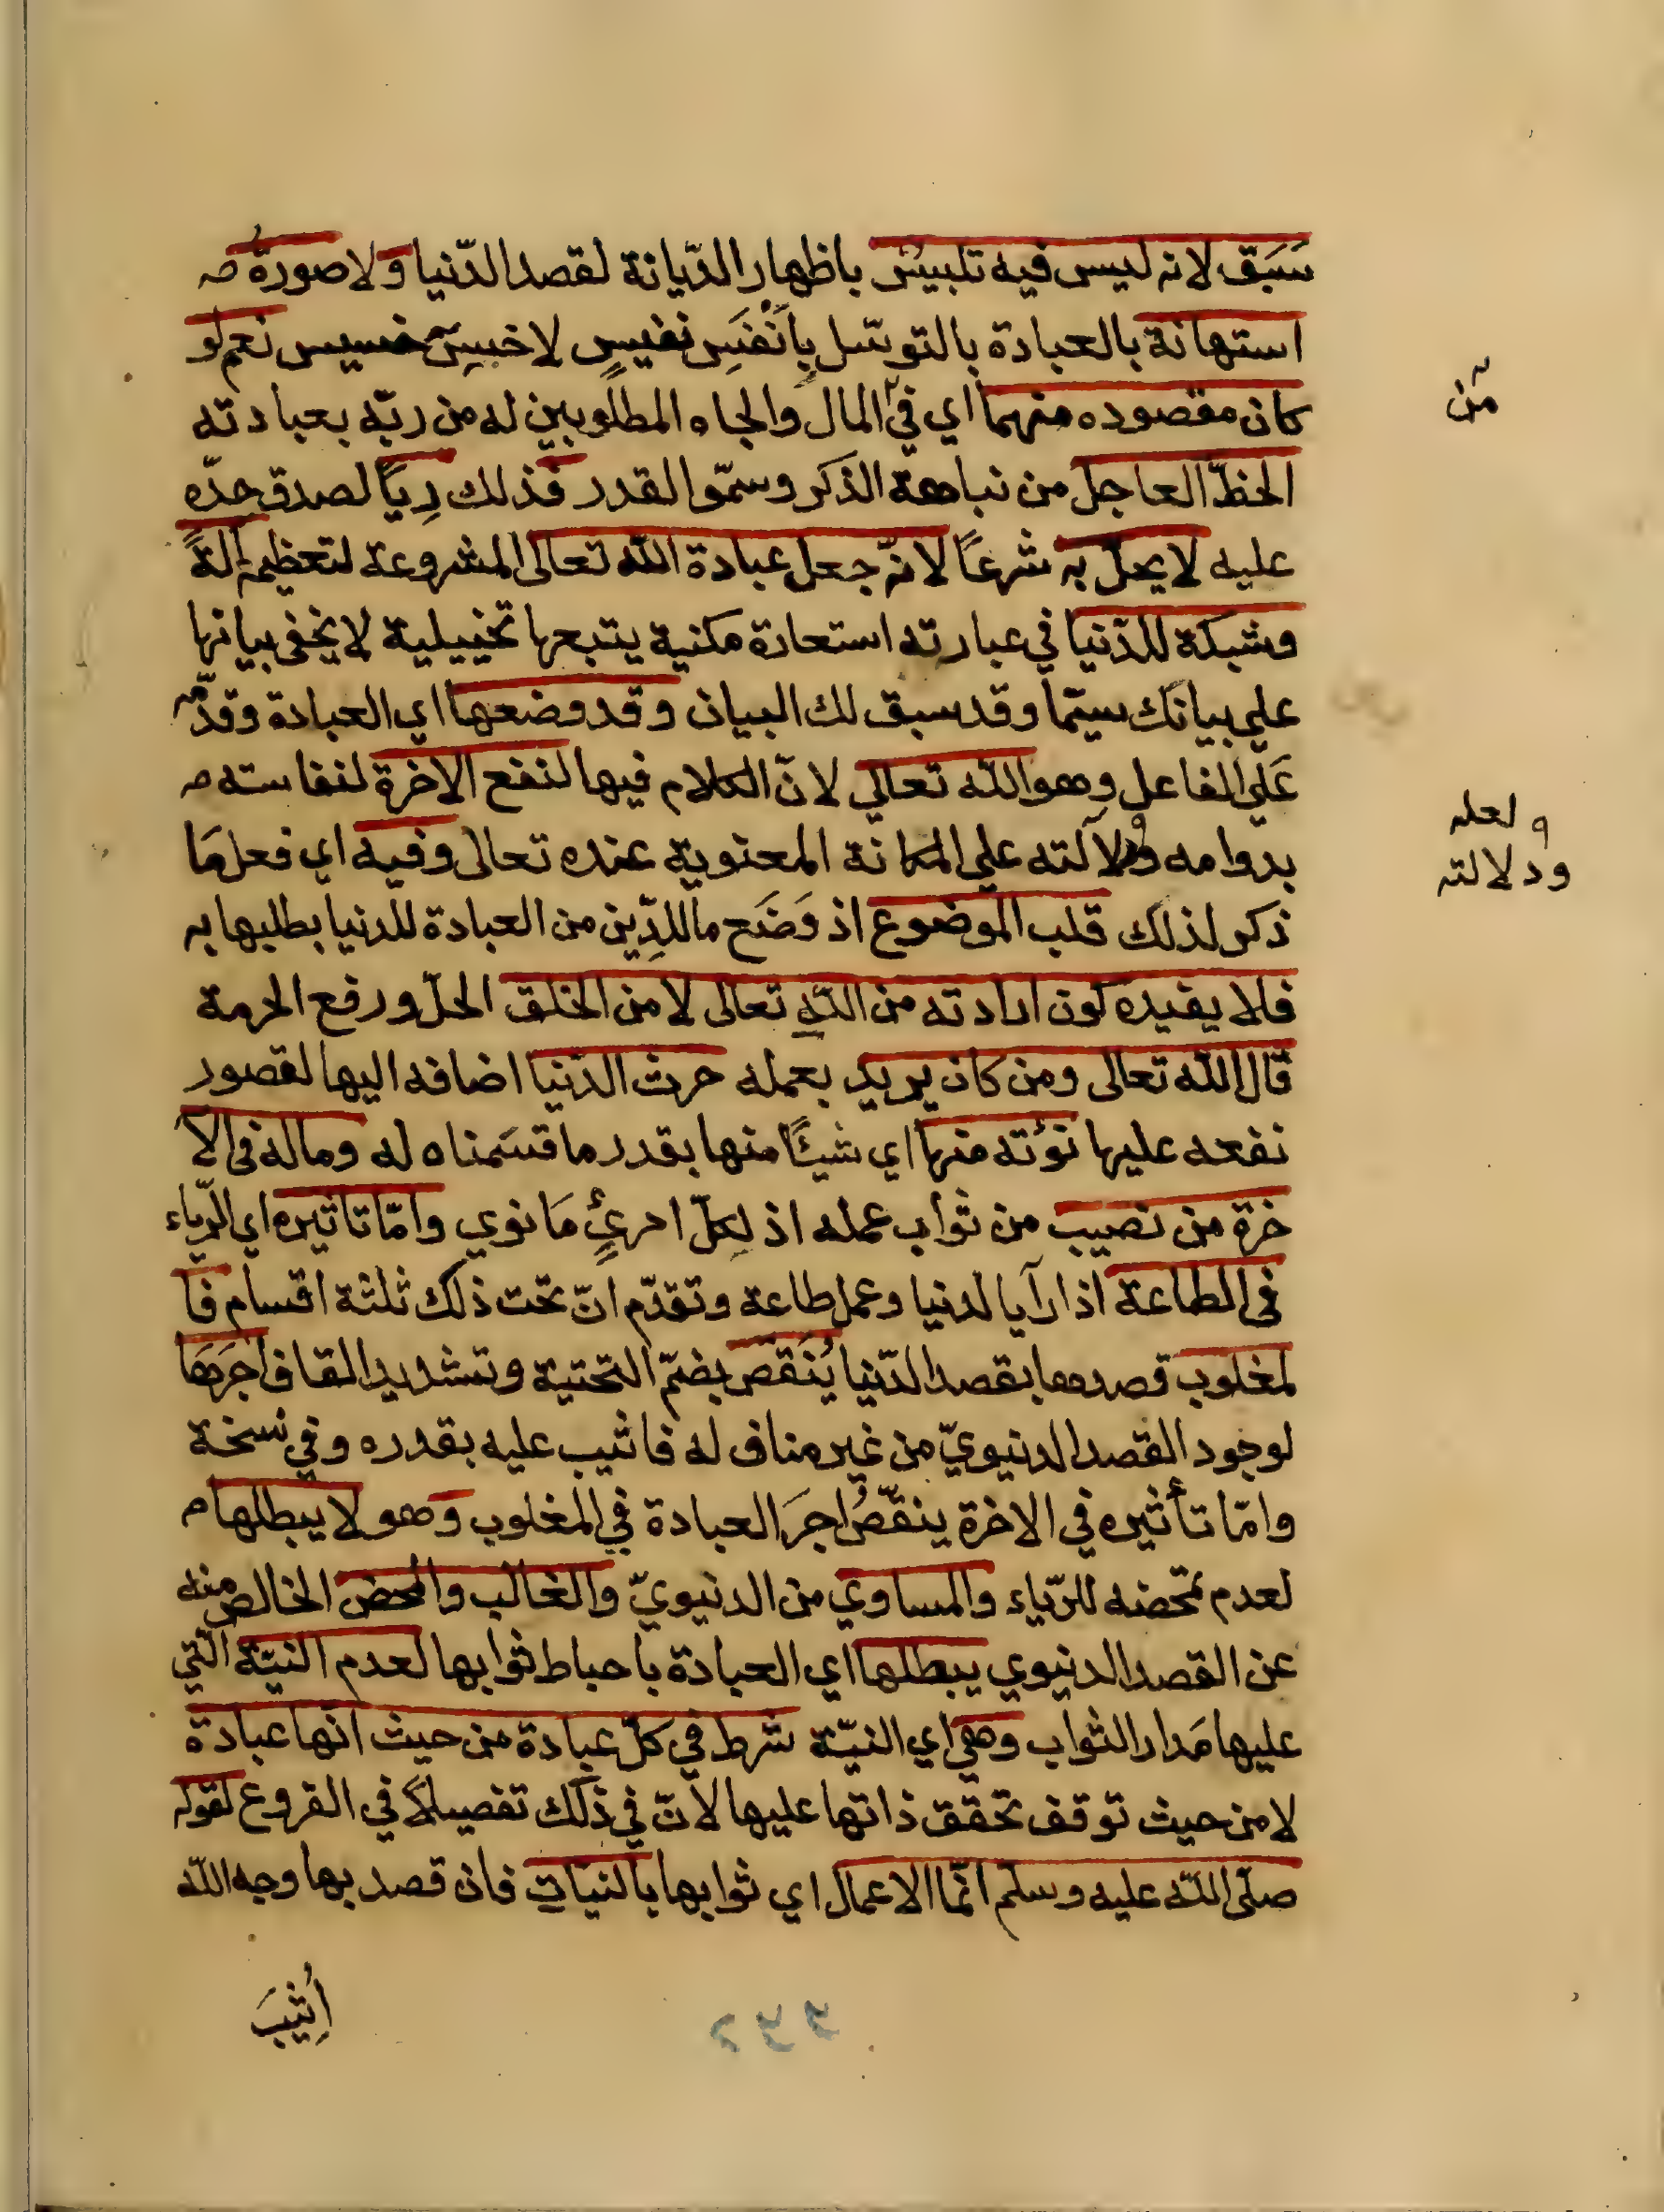 سَبَق لانه ليس فيه تلبيسٌ باظهار الدّيانة لقصد الدّنيا ولا صورةُ
استهانة بالعبادة بالتوسّل بِاَنْفَسِ نفيسٍ لاخسِّ خسيس نعم لو
كان مقصوده منهما اي في المال والجاه المطلوبين له من ربّه بعبادته
من
الحظّ العاجل من نباهة الذكر وسموّ القدر فذلك رِيًا لصدق حدّه
عليه لا يحلّ به شرعًا لانّه جعل عبادة الله تعالى المشروعة لتعظيمه اٰلةً
وشبكة للدّنيا في عبارته استعارة مكنية يتبعها تخييلية لا يخفى بيانها
علي بيانك سيّما وقد سبق لك البيان وقد وضعها اي العبادة وقدّمه
عَلي الفاعل وهو الله تعالي لانّ الكلام فيها لنفع الاخرة لنفاسته
بدوامه ولآلته علي المكانة المعنوية عنده تعالى وفيه اي فعل مَا
و لعله
ودلالته
ذكر لذلك قلب الموضوع اذ وَضَع ما للدِّين من العبادة للدنيا بطلبها به
فلا يفيده كون ارادته من الله تعالى لا من الخلق الحلّ ورفع الحرمة
قال الله تعالى ومن كان يريد بعمله حرث الدّنيا اضافه اليها لقصور
نفعه عليها نؤته منها اي شيئًا منها بقدر ما قسَمناه له وما له في الآ
خرة من نصيب من ثواب عمله اذ لِكلّ امرئٍ مَا نوي وامّا تاثيره اي الرّياء
في الطاعة اذا رآيا لدنيا وعمل طاعة وتقدّم انّ تحت ذلك ثلثة اقسام فا
لمغلوب قصدهما بقصد الدّنيا يُنَقّص بضمّ التحتية وتشديد القاف اجرَهَا
لوجود القصد الدنيويّ من غير مناف له فاثيب عليه بقدره وفي نسخة
وامّا تأثيره في الاخرة ينقّصُ اجرَ العبادة في المغلوب وهو لا يبطلها
لعدم تمحضه للرّياء والمساوي من الدنيويّ والغالب والمحض الخالص منه
عن القصد الدنيوي يبطلها اي العبادة باحباط ثوابها لعدم النيّة الّتي
عليها مَدار الثواب وهي اي النيّة شرط في كلّ عبادة من حيث انّها عبادة
لا من حيث توقف تحقق ذاتها عليها لانّ في ذلك تفصيلاً في الفروع لقوله
صلّى الله عليه وسلّم انّما الاعمال اي ثوابها بالنيات فان قصد بها وجه الله
اُثِيبَ